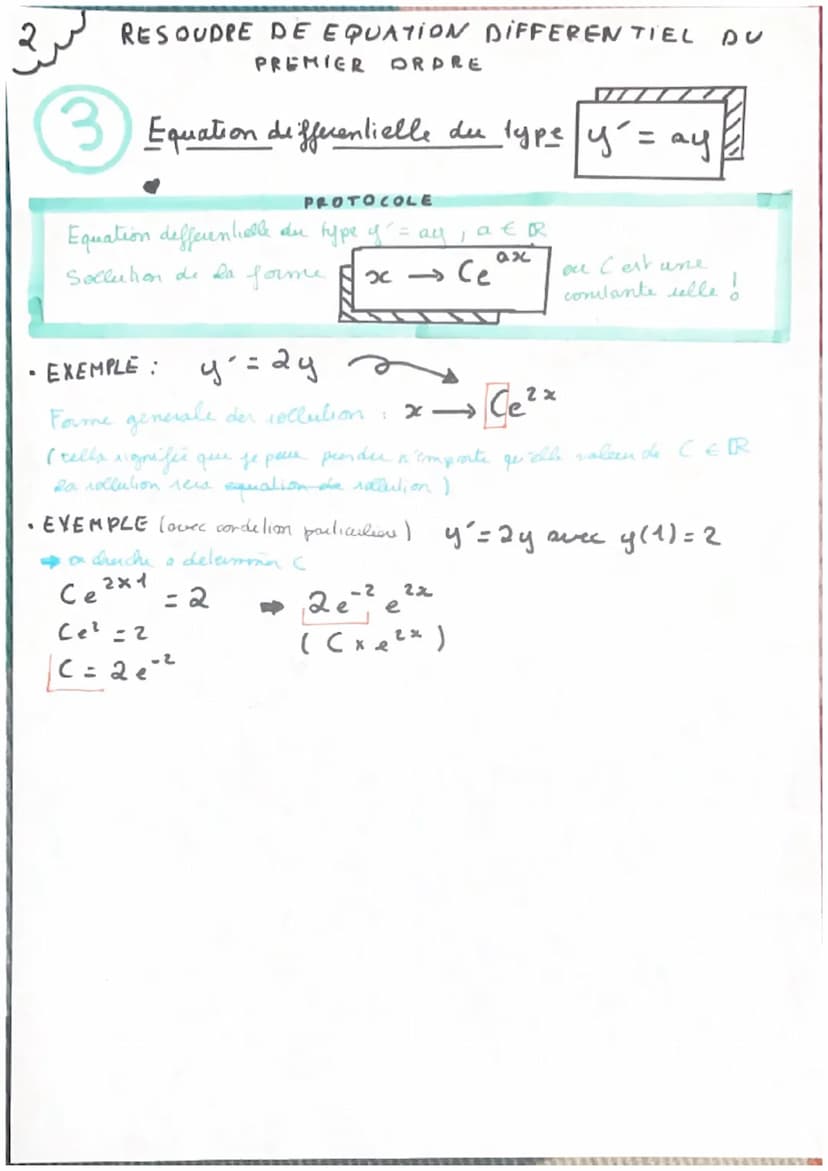 2 RESOUDRE DE EQUATION DIFFERENTIEL DU
PREMIER ORDRE
3 Equation differentielle du type y' = ay
PROTOCOLE
Equation differentielle du type y' = ay, a ∈ ℝ
Sollution de la forme x → Ce^{ax} ou C est une
constante reelle !
• EXEMPLE : y' = 2y
Forme generale des sollution : x → Ce^{2x}
(cella signifie que je peux prendre n'importe qu'elle valeur de C ∈ ℝ
la sollution sera equation de sollution)
• EXEMPLE (avec condition particuliere) y' = 2y avec y(1) = 2
➡ on cherche a determiner C
Ce^{2×1} = 2 ➡ 2e^{-2} e^{2x}
Ce² = 2 (C × e^{2x})
C = 2e^{-2}